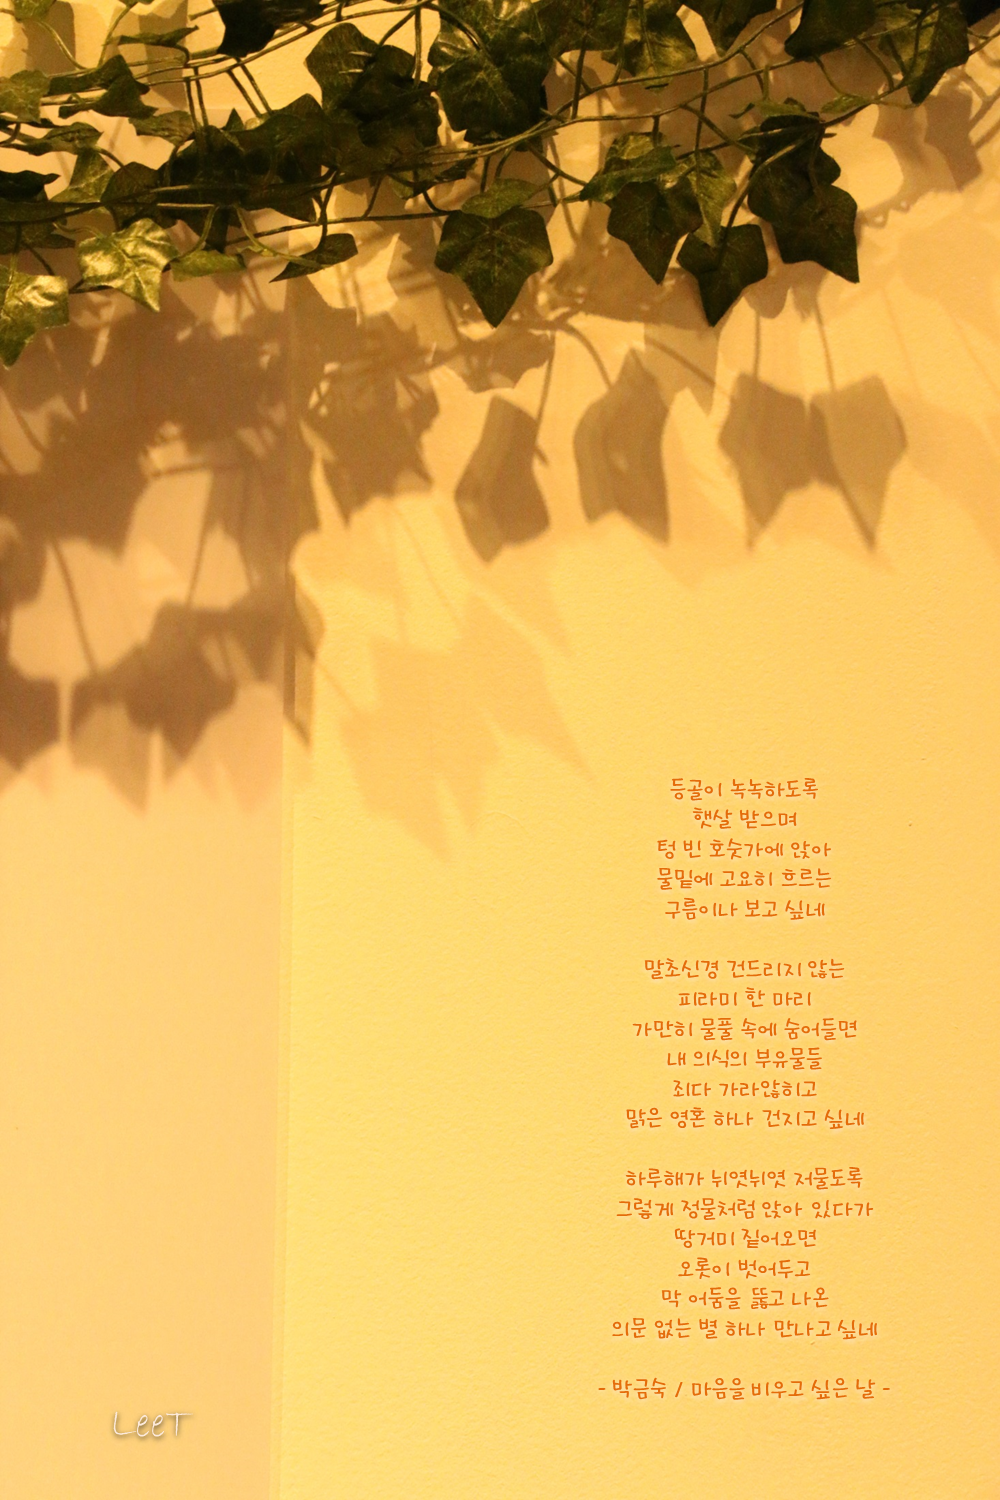 등골이 녹녹하도록
햇살 받으며
텅 빈 호숫가에 앉아
물밑에 고요히 흐르는
구름이나 보고 싶네
말초신경 건드리지 않는
피라미 한 마리
가만히 물풀 속에 숨어들면
내 의식의 부유물들
죄다 가라앉히고
맑은 영혼 하나 건지고 싶네
하루해가 뉘엿뉘엿 저물도록
그렇게 정물처럼 앉아 있다가
땅거미 짙어오면
오롯이 벗어두고
막 어둠을 뚫고 나온
의문 없는 별 하나 만나고 싶네
- 박금숙 / 마음을 비우고 싶은 날 -
LeeT